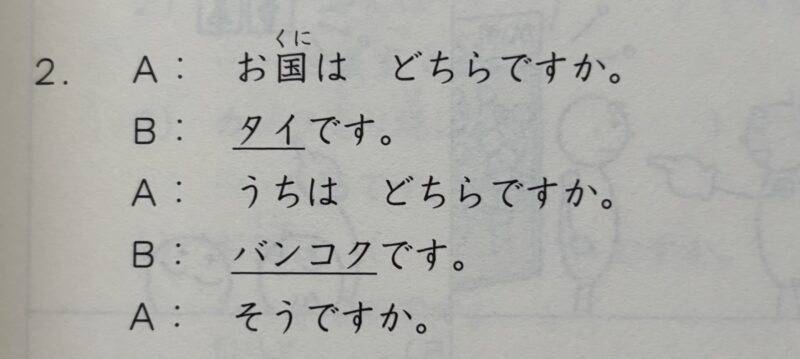 2. A: お国は どちらですか。
くに
B: タイです。
A: うちは どちらですか。
B: バンコクです。
A: そうですか。